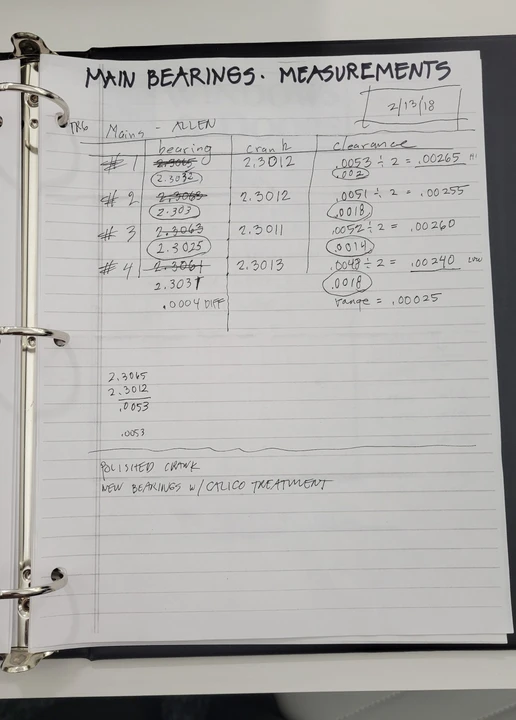 MAIN BEARINGS. MEASUREMENTS
2/13/18
TR6 Mains - ALLEN
bearing crank clearance
# 1 2.3065 2.3012 .0053 ÷ 2 = .00265 HI
2.3032 .002
# 2 2.3063 2.3012 .0051 ÷ 2 = .00255
2.303 .0018
# 3 2.3063 2.3011 .0052 ÷ 2 = .00260
2.3025 .0014
# 4 2.3061 2.3013 .0048 ÷ 2 = .00240 LOW
2.3031 .0018
.0004 DIFF range = .00025
2.3065
2.3012
.0053
.0053
POLISHED CRANK
NEW BEARINGS W/ CALICO TREATMENT